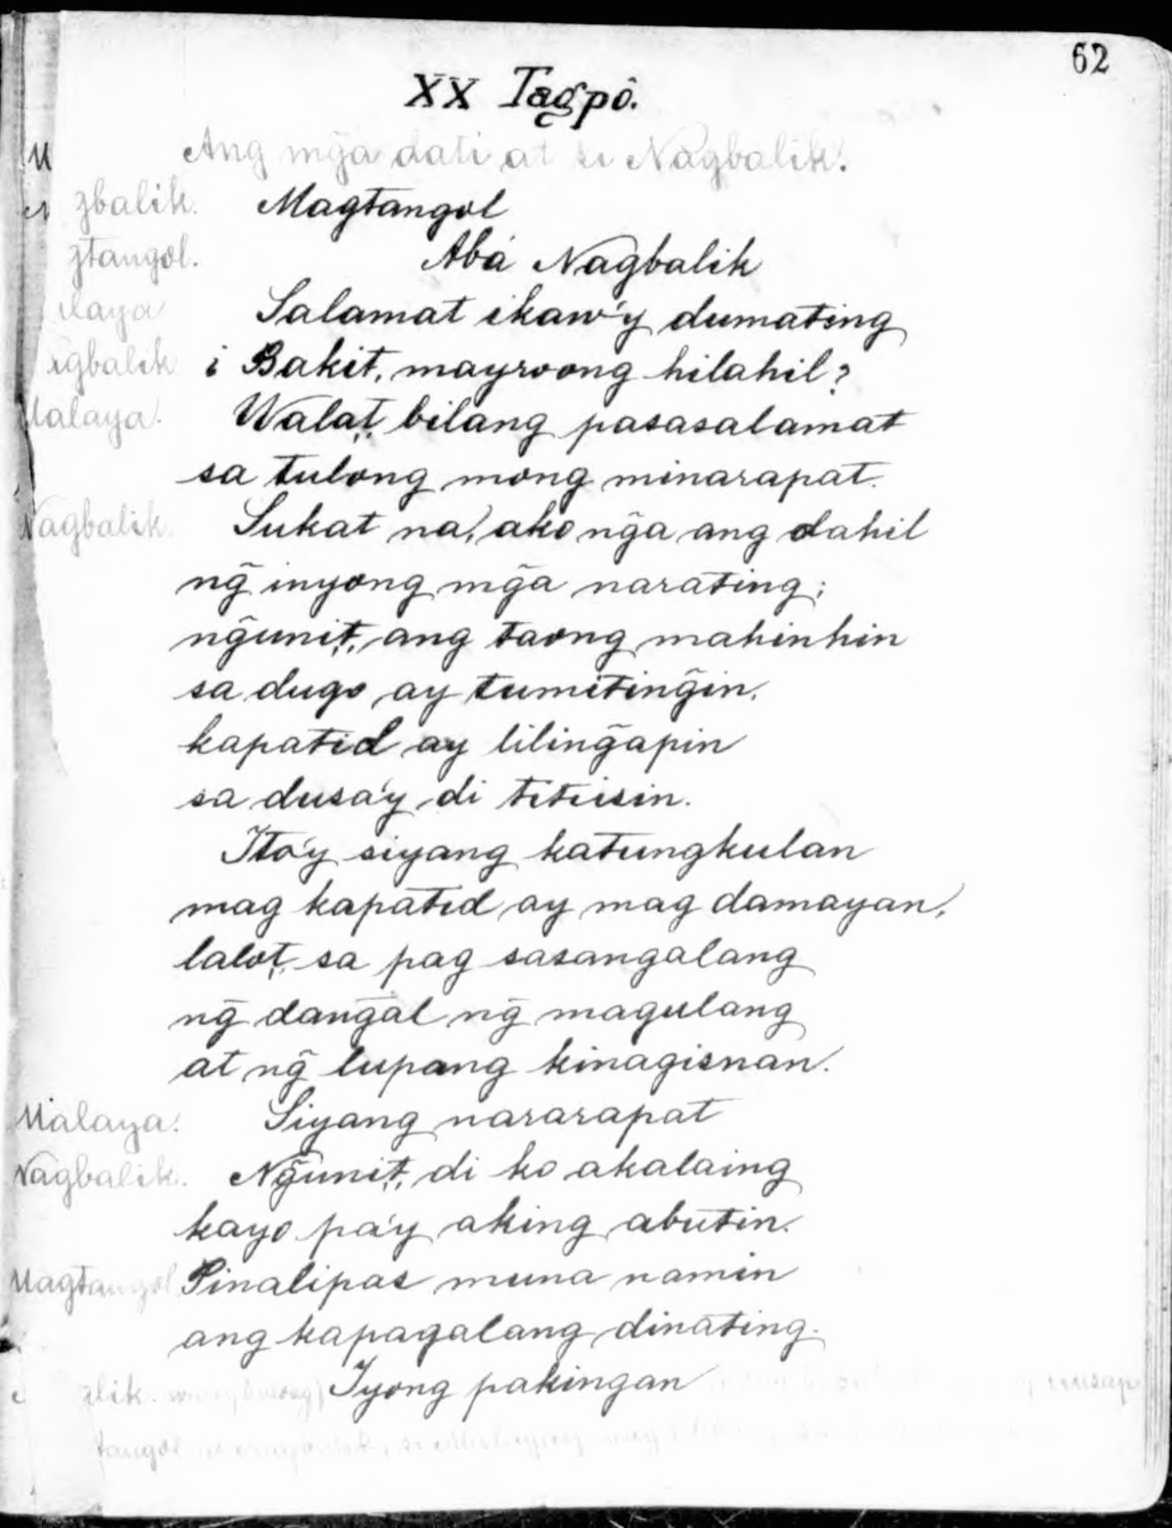 62
XX Tagpô.
Ang mg̃a dati at si Nagbalik.
gbalik. Magtangol
gtangol. Abá Nagbalik
laya Salamat ikaw'y dumating
agbalik ¿Bakit, mayroong hilahil?
Malaya. Walat, bilang pasasalamat
sa tulong mong minarapat.
Nagbalik. Sukat na, ako ng̃a ang dahil
ng̃ inyong mg̃a narating;
ng̃unit, ang taong mahinhin
sa dugo ay tumiting̃in,
kapatid ay liling̃apin
sa dusa'y di titiisin.
Ito'y siyang katungkulan
mag kapatid ay mag damayan,
lalot, sa pag sasangalang
ng̃ dang̃al ng̃ magulang
at ng̃ lupang kinagisnan.
Malaya. Siyang nararapat
Nagbalik. Ng̃unit, di ko akalaing
kayo pa'y aking abutin.
Magtangol Pinalipas muna namin
ang kapagalang dinating.
alik. Iyong pakingan